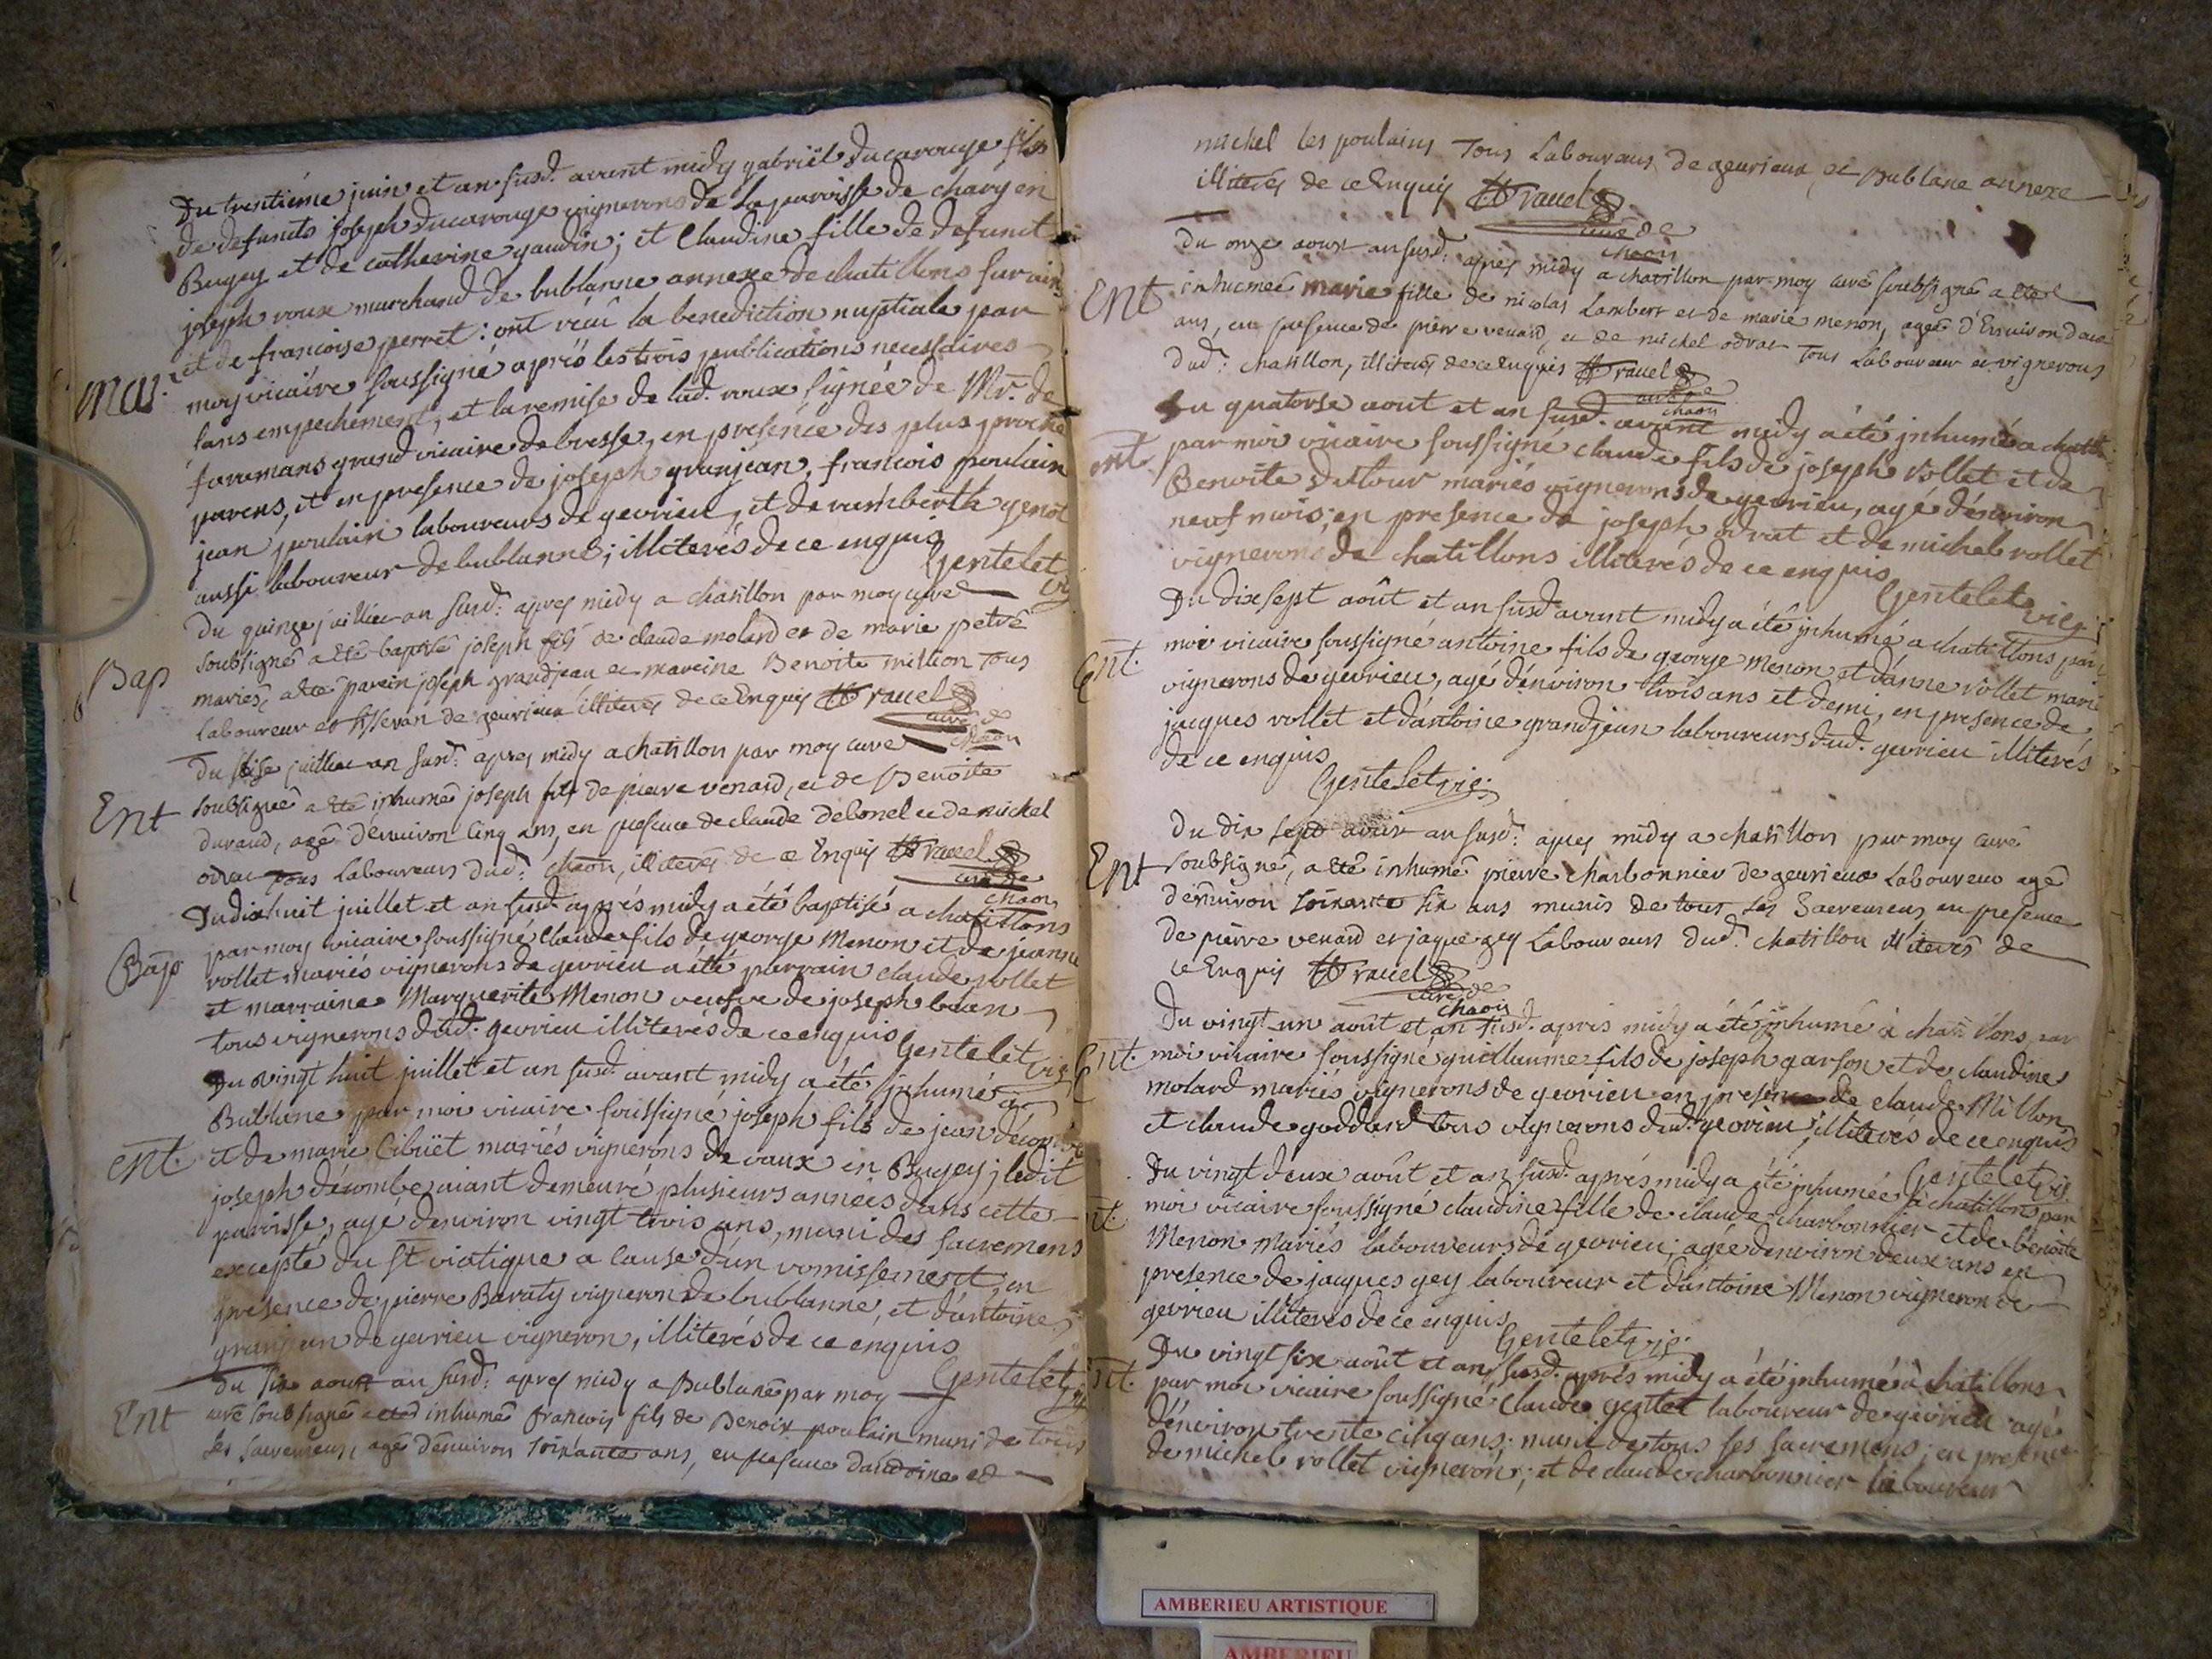 Du trentiéme juin et an susd. avant midy gabriël ducarouge fils
de defuncts joseph ducarouge vignerons de la paroisse de charyein
Bugey et de catherine gaudin; et Claudine fille de defunct
joseph roux marchand de bublanne annexe de chatillons sur ain
et de francoise perret: ont reçû la benediction nuptiale par
Mar. moy vicaire soussigné aprés les trois publications necessaires
sans empechement, et la remise de lad. roux signée de Mr. de
faremans grand vicaire de bresse, en presénce des plus proche
parens, et en presence de joseph granjean, francois poulain
jean poulain laboureurs de gevrieu, et de rambertk genot
aussi laboureur de bublanne; illiterés de ce enquis
Gentelet vic
Du quinze juillet an susd: apres midy a chatillon par moy curé
Bap soubsigné a eté baptisé joseph fils de claude molard et de marie petre
mariés, a eté parein joseph grandjean et mareine Benoite million tous
laboureur et tisseran de geurieux illiterés de ce Enquis ravel
curé de chaon
Du seise juillet an susd: apres midy a chatillon par moy curé
Ent soubsigné a eté inhumé joseph fils de pierre venard, et de Benoite
durand, agé d'enuiron cinq ans, en presence de claude debonel et de michel
odrat tous laboureurs dud: chaon, illiterés de ce Enquis ravel
curé de chaon
Du dixhuit juillet et an susd. aprés midy a été baptisé a chatillons
Bap par moy vicaire soussigné Claude fils de george Menon et de jeanne
rollet mariés vignerons de gevrieu a été parrain claude rollet
et marraine Marguerite Menon veufve de joseph
tous vignerons dud. gevrieu illiterés de ce enquis Gentelet vic
Du vingt huit juillet et an susd. avant midy a été inhumé a
Bublane par moi vicaire soussigné joseph fils de jean décombe
ent. et de marie Cibuët mariés vignerons de vaux en Bugey; ledit
joseph décombe aiant demeuré plusieurs années dans cette
paroisse, agé denviron vingt trois ans, muni des sacremens
excepté du st viatique a cause d'un vomissement, en
presence de pierre Baraty vigneron de bublanne, et d'antoine
granjean de gevrieu vigneron, illiterés de ce enquis
Gentelet vic
Du six aoust an susd: apres midy a Bublane par moy
Ent curé soubsigné a eté inhumé francois fils de Benoix poulain muni de tous
les sacremens, agé d'enuiron soixante ans, en presence d'andoine et
michel les poulains Tous Laboureurs de geurieux et Bublane annexe
illiterés de ce Enquis ravel
curé de chaon
Du onze aoust an susd: apres midy a chatillon par moy curé soubsigné a eté
Ent inhumée marie fille de nicolas Lambert et de marie menon, agée d'Enuiron deux
ans, en presence de pierre venard, et de michel odrat Tous Laboureur et vignerons
dud: chatillon, illiterés de ce enquis ravel
curé de chaon
Du quatorse aout et an susd. avant midy a été inhumé a chatill
ent. par moi vicaire soussigné claude fils de joseph rollet et de
Benoite dufour mariés vignerons de gevrieu, agé d'énviron
neuf mois; en presence de joseph odrat et de michel rollet
vignerons de chatillons illiterés de ce enquis
Gentelet vic
Du dixsept août et an susd. avant midy a été inhumé a chatillons par
ent. moi vicaire soussigné antoine fils de george Menon et d'anne rollet marié
vignerons de gevrieu, agé d'énviron trois ans et demi, en presence de
jacques rollet et d'antoine grandjean laboureurs dud. gevrieu illiterés
de ce enquis
Gentelet vic.
Du dix sept aoust an susd: apres midy a chatillon par moy curé
Ent soubsigné, a eté inhumé pierre charbonnier de geurieux Laboureur agé
d'enuiron soixante six ans munis de tous ses Sacremens, en presence
de pierre venard et jaque gey Laboureurs dud: chatillon illiterés de
ce Enquis ravel
curé de chaon
Du vingt un août et an susd. aprés midy a été inhumé à chatillons par
Ent. moi vicaire soussigné guillaume fils de joseph garson et de claudine
molard mariés vignerons de gevrieu en presence de claude Millon
et claude goddard tous vignerons dud. gevrieu; illiterés de ce enquis
Gentelet vic
Du vingt deux août et an susd. aprés midy a été inhumée a chatillons par
nt. moi vicaire soussigné claudine fille de claude charbonnier et de benoite
Menon mariés laboureurs de gevrieu; agée denviron deux ans en
presence de jacques gey laboureur et d'antoine Menon vigneron de
gevrieu illiterés de ce enquis
Gentelet vic.
Du vingt six août et an susd. aprés midy a été inhumé à chatillons
nt. par moi vicaire soussigné Claude gentet laboureur de gevrieu agé
d'énviron trente cinq ans; muni de tous ses sacremens; en presence
de michel rollet vigneron; et de claude charbonnier laboureur
AMBERIEU ARTISTIQUE
AMBERIEU